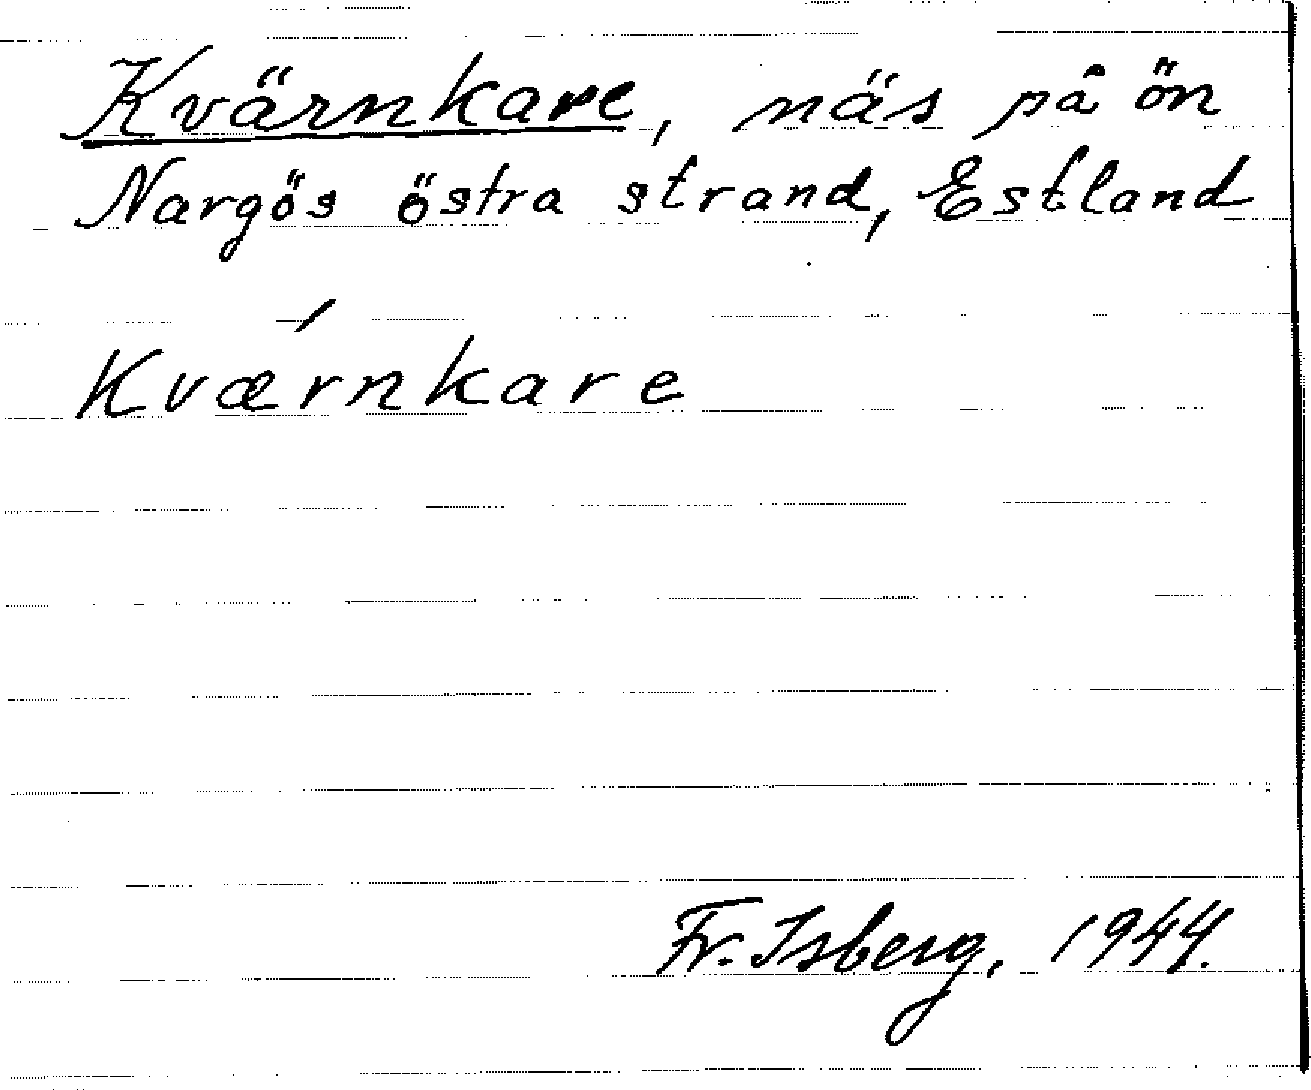 Kvärnkare, näs på ön
Nargös östra strand, Estland
Kværnkare
Fr. Isberg, 1944.